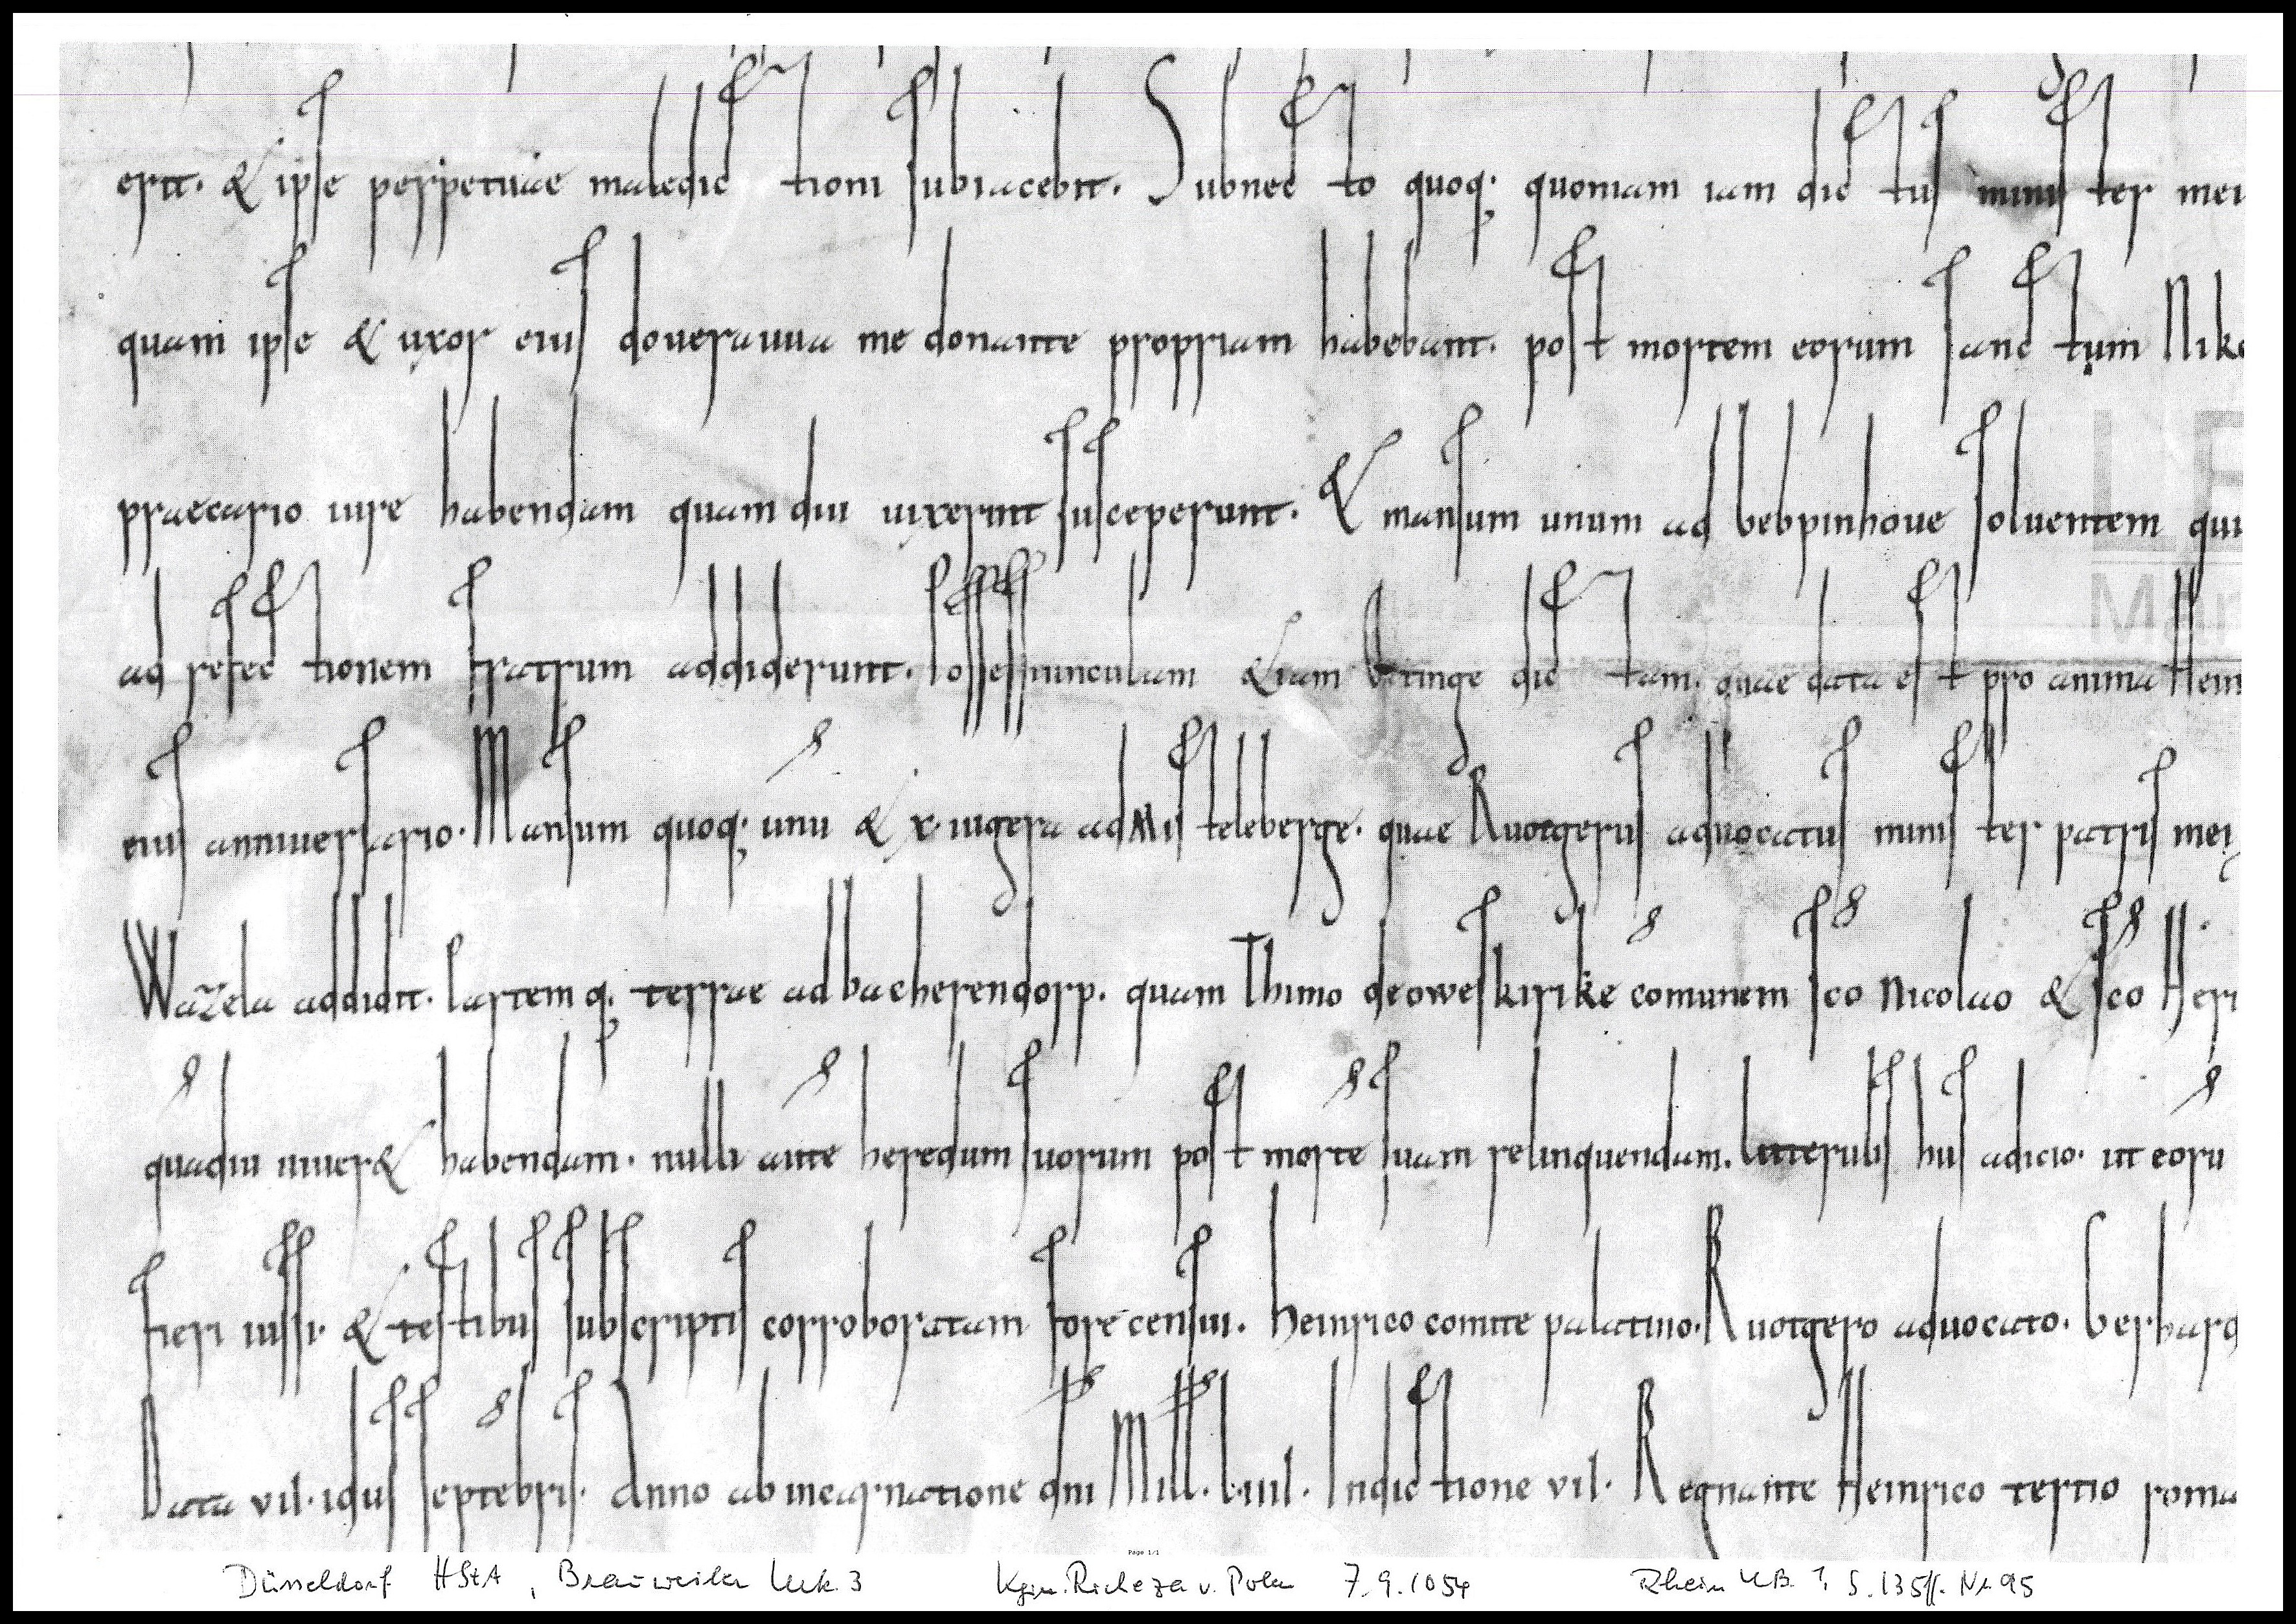 erit. & ipse perpetuae maledictioni subiacebit. Subnecto quoq; quoniam iam dictus minister mei
quam ipse & uxor eius doueruuua me donante propriam habebant. post mortem eorum sanctum Niko
praecario iure habendam quamdiu uixerint susceperunt. & mansum unum ad bebpinhoue soluentem qui
ad refectionem fratrum addiderunt. &iam dictam. quae data est pro anima Hein
eius anniuersario. Mansum quoq; unū & x. iugera ad Misteleberge. quae Ruotgerus aduocatus minister patris mei
Wazela addidit. Partemq; terrae ad bacherendorp. quam Thimo de oweskirike comunem sc̄o Nicolao & sc̄o Heri
quādiu uiuer& habendam. nulli ante heredum suorum post mortē suam relinquendam. Litterulis his adicio. ut eorū
fieri iussi. & testibus subscriptis corroboratam fore censui. Heinrico comite palatino. Ruotgero aduocato. Gerhard
Data vii. idus septēbris. Anno ab incarnatione dn̄i Mill. L.iiii. Indictione vii. Regnante Heinrico tertio roma
LE
Mar
Page 1/1
Düsseldorf HStA, Brauweiler Urk. 3 Kgin. Richeza v. Polen 7.9.1054 Rhein UB. 1, S. 135ff. Nr. 95